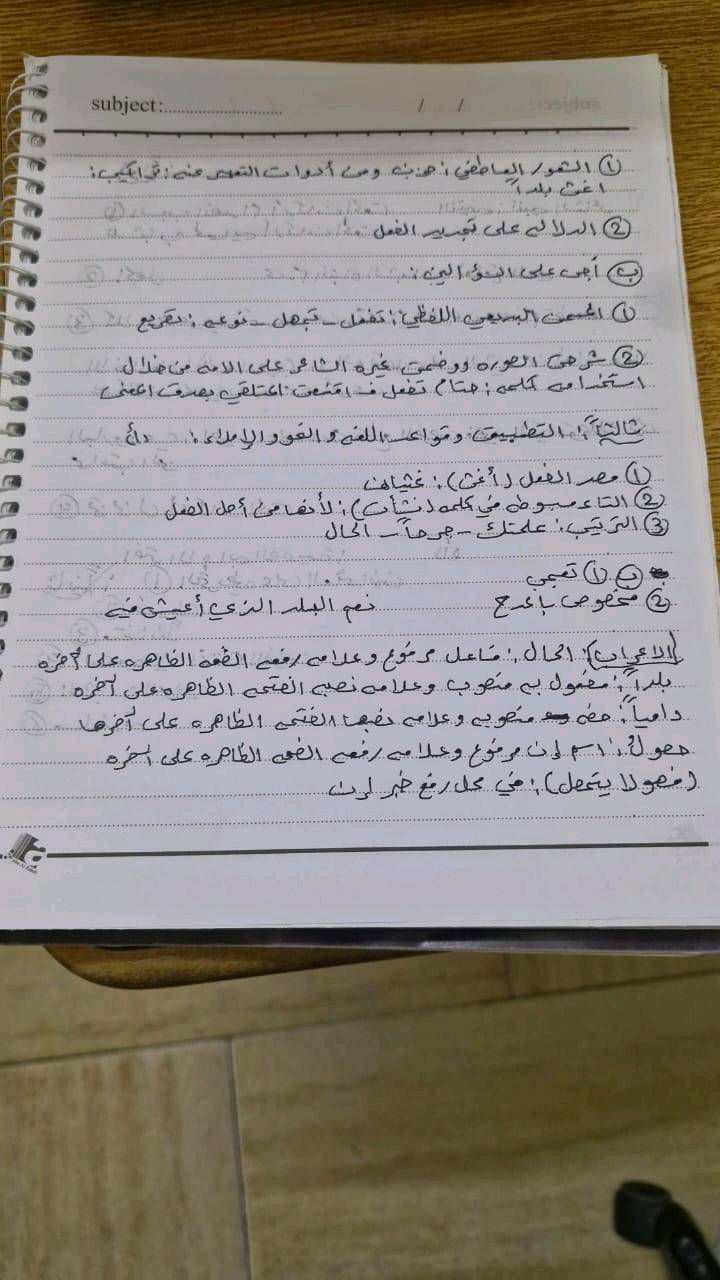 subject:............................ / /
① الشعور العاطفي: حزن ومن أدوات التعبير عنه: تراكيب:
اغث بلداً
② الدلاله على تجديد الفعل
ب أجب على السؤالين:
① المحسن البديعي اللفظي: تغفل - تجهل - نوعه: تصريع
② شرحت الصوره ووضحت غيره الشاعر على الامه من خلال
استخدامه كلمه: حتام تغفل فـ اقنعت المتلقي بصدق المعنى
ثالثاً: التطبيق وقواعد اللغه و النحو والإملاء:
① مصدر الفعل (أغث): غثيان
② التاء مبسوطه في كلمه (نشأت): لأنها من أصل الفعل
③ الترتيب: علمتك - جرحاً - الحال
ب ① تعجبي
② مخصوص بالمدح نعم البلد الذي أعيش فيه
الاعراب: الحال: فاعل مرفوع وعلامه رفعه الضمه الظاهره على آخره
بلداً: مفعول به منصوب وعلامه نصبه الفتحه الظاهره على آخره
دامياً: صفه منصوبه وعلامه نصبها الفتحه الظاهره على آخرها
اسم إن مرفوع وعلامه رفعه الضمه الظاهره على آخره
(فهو لا يتمهل): في محل رفع خبر إن